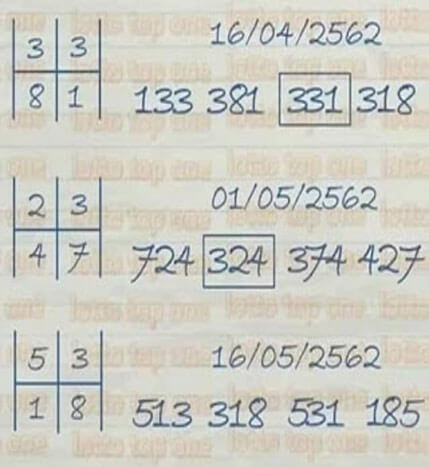 3 3 16/04/2562
8 1 133 381 331 318
2 3 01/05/2562
4 7 724 324 374 427
5 3 16/05/2562
1 8 513 318 531 185